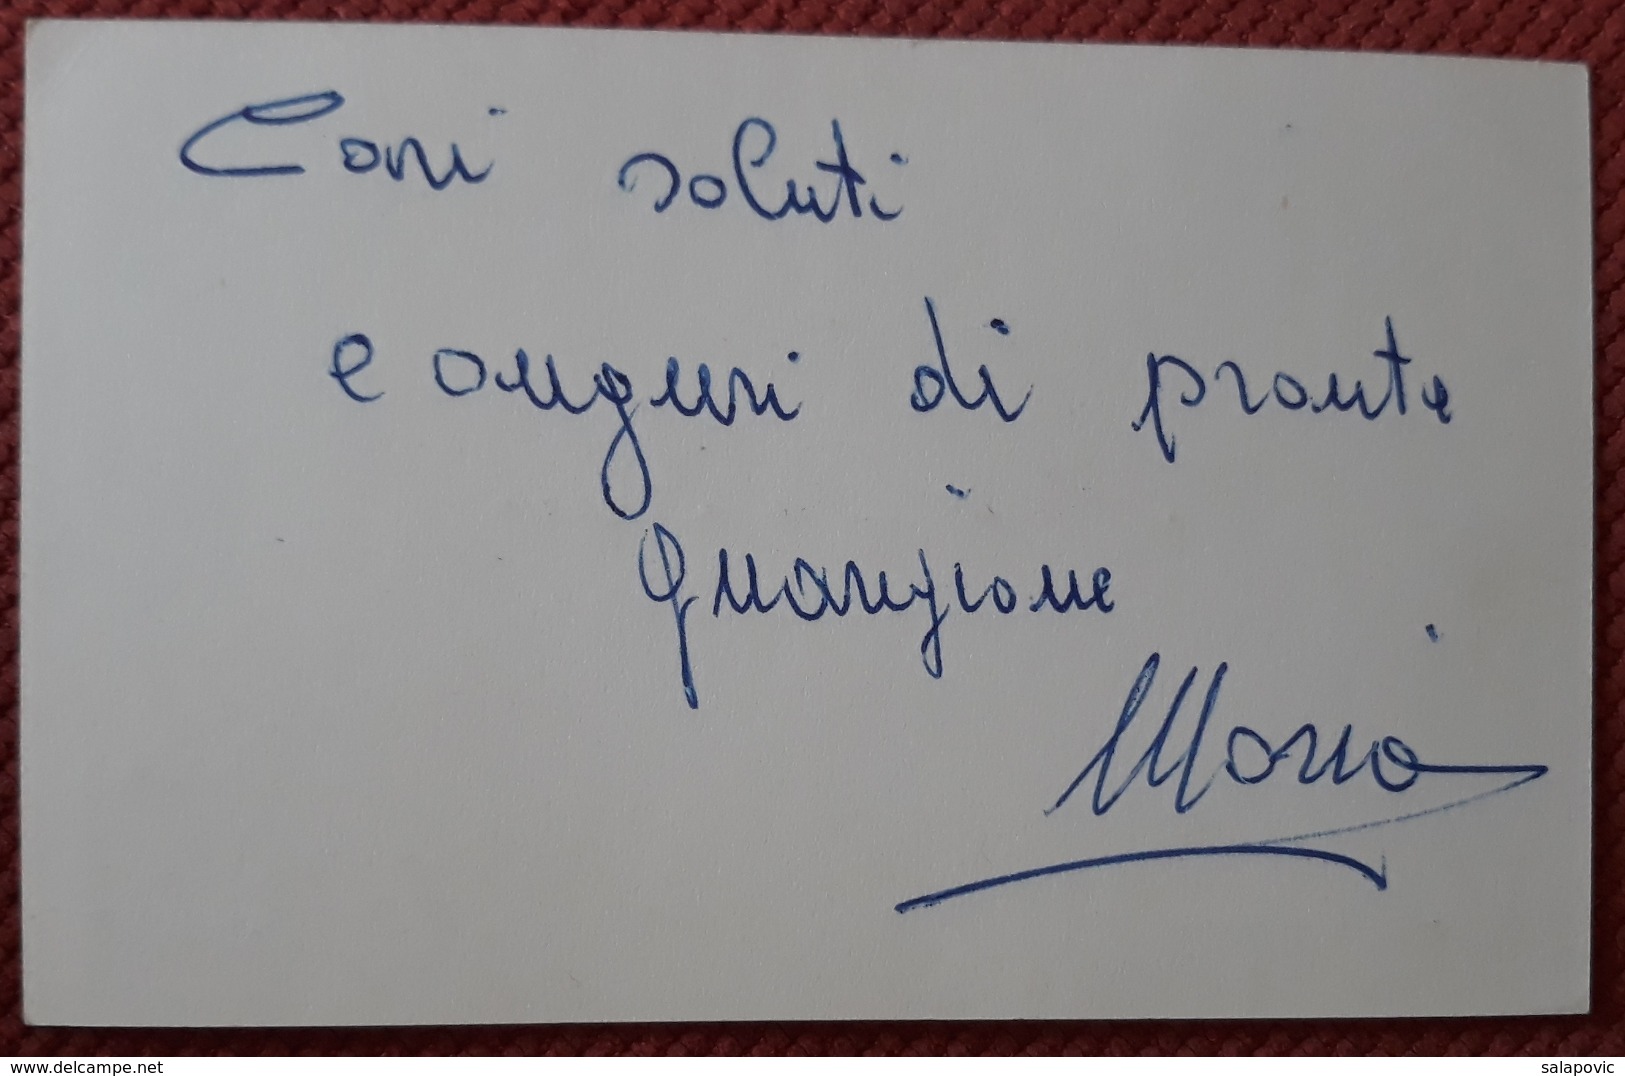 Cari saluti
e auguri di pronta
guarigione
Maria
www.delcampe.net
salapovic